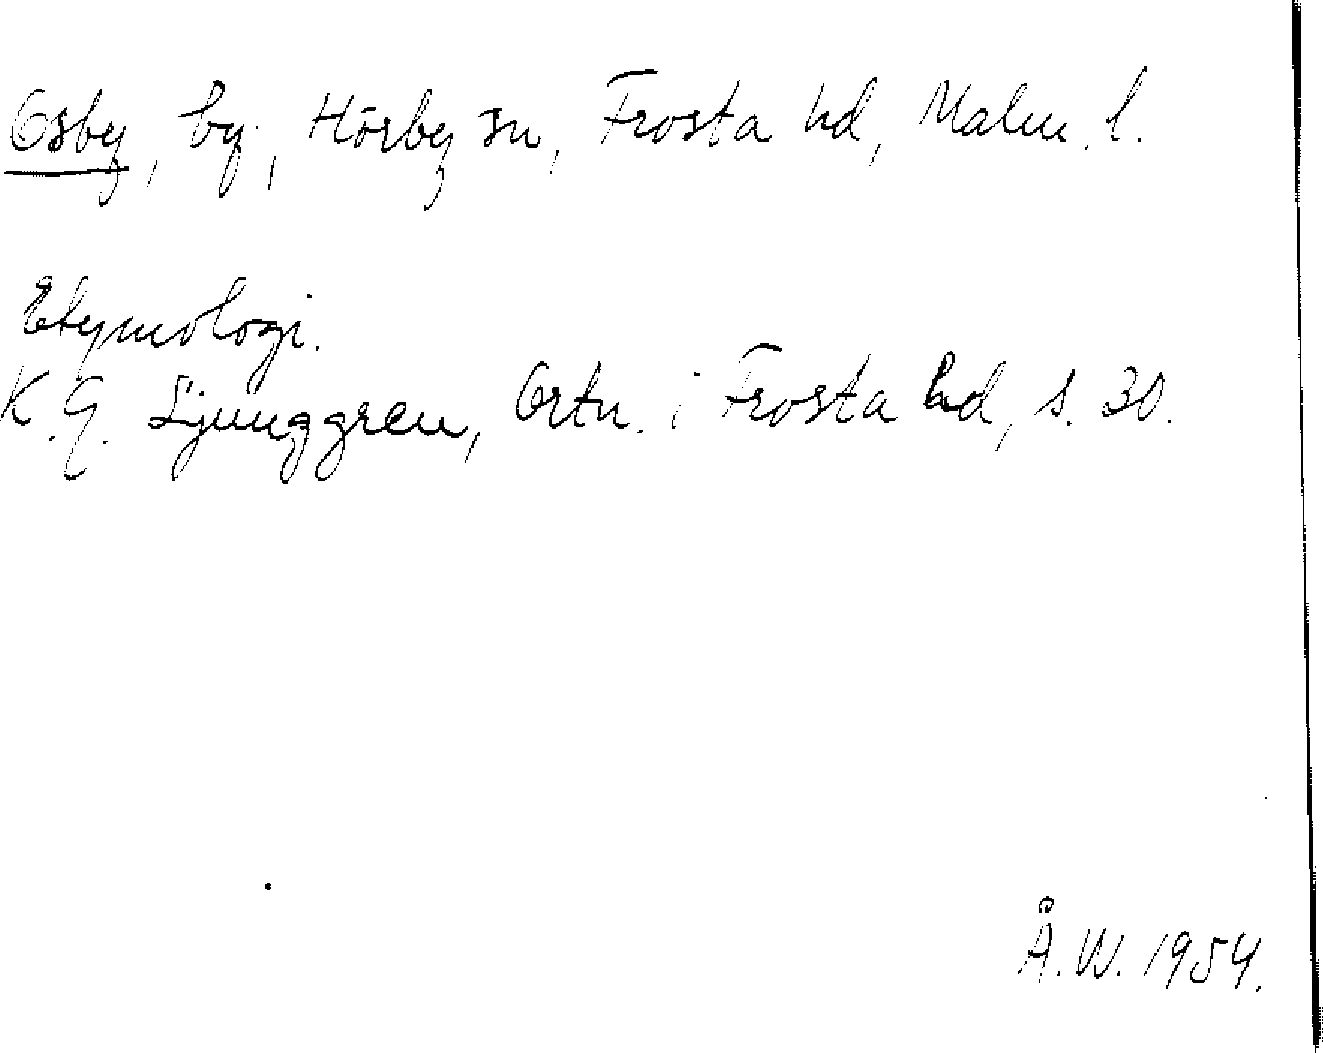 Osby, by, Hörby sn, Frosta hd, Malm. l.
Etymologi.
K.G. Ljunggren, Ortn. i Frosta hd, s. 30.
Å.W. 1954.